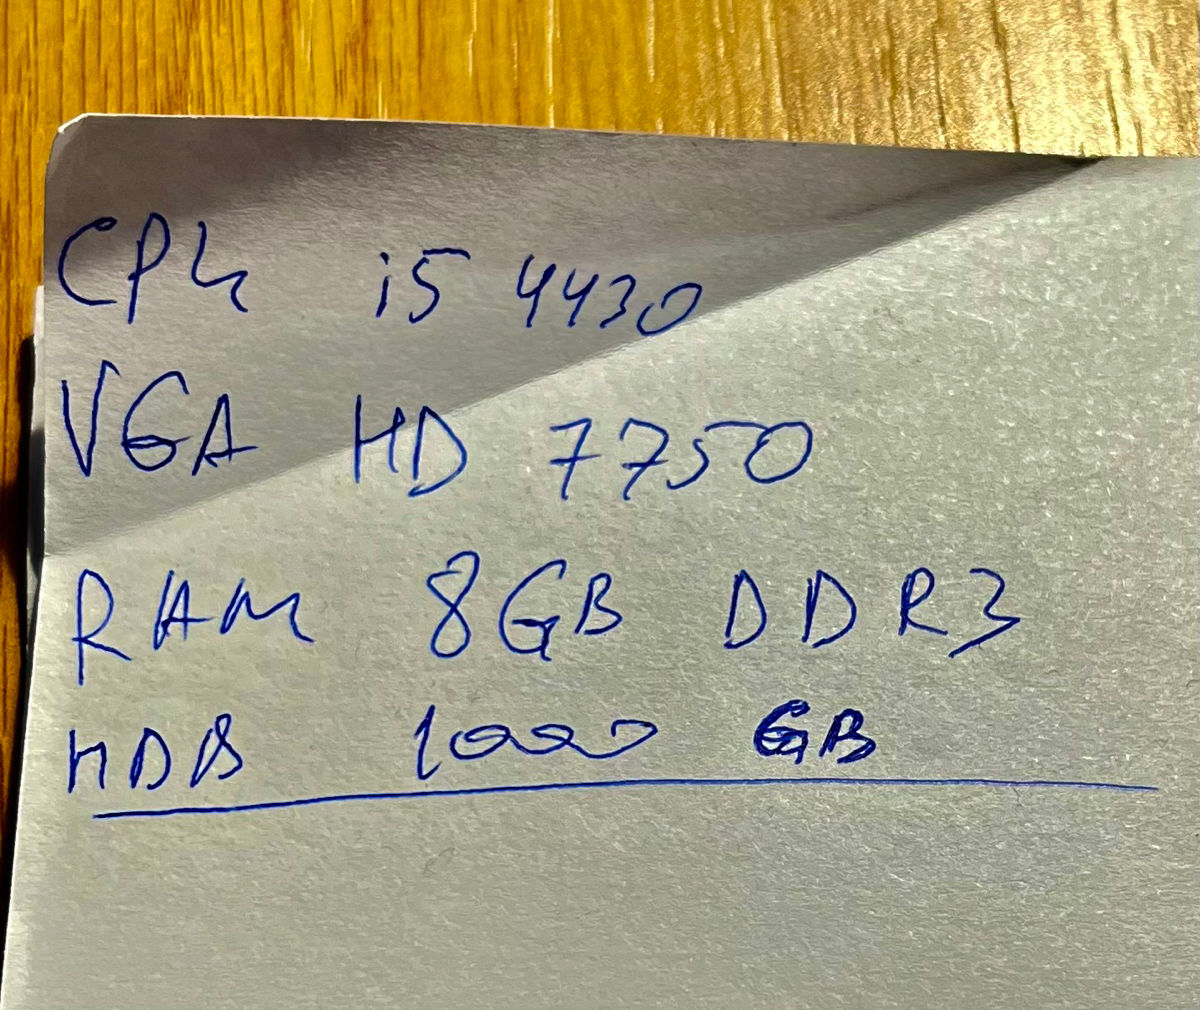 CPU i5 4430
VGA HD 7750
RAM 8GB DDR3
HDD 1000 GB